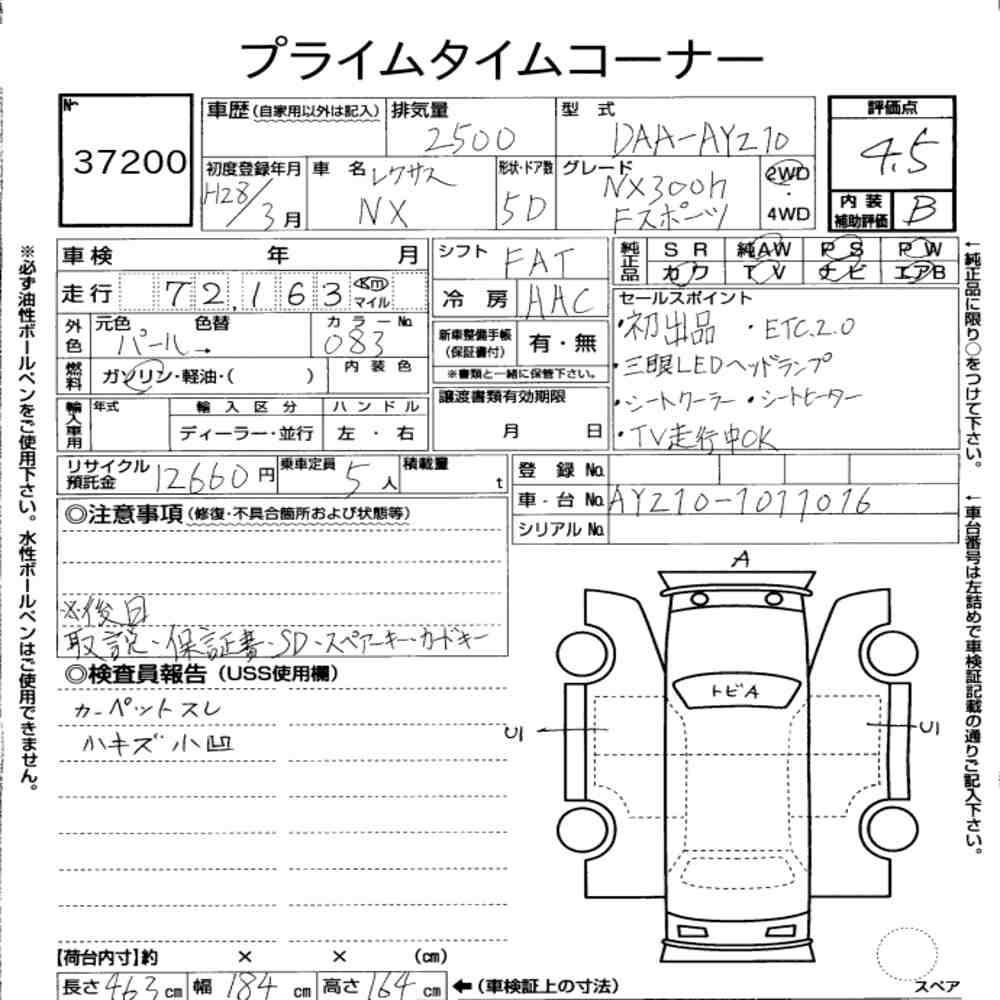 プライムタイムコーナー
№
37200
車歴(自家用以外は記入)
排気量
2500
型式
DAA-AYZ10
評価点
4.5
初度登録年月
H28/3月
車名
レクサス
NX
形状・ドア数
5D
グレード
NX300h
Fスポーツ
2WD
・
4WD
内装
補助評価
B
車検 年 月
シフト
FAT
純正品
SR 純AW PS PW
カワ TV ナビ エアB
走行 72,163 Km マイル
冷房 AAC
セールスポイント
・初出品 ・ETC.2.0
・三眼LEDヘッドランプ
・シートクーラー ・シートヒーター
・TV走行中OK
外色 元色 色替
パール→
カラーNo.
083
新車整備手帳
(保証書付)
有・無
※書類と一緒に保管下さい。
燃料 ガソリン・軽油・( )
内装色
輸入車用 年式 輸入区分 ハンドル
ディーラー・並行 左・右
譲渡書類有効期限
月 日
リサイクル
預託金
12660円
乗車定員 5人
積載量 t
登録No.
車台No. AYZ10-1011016
シリアルNo.
◎注意事項(修復・不具合箇所および状態等)
※後日
取説・保証書・SD・スペアーキー・カードキー
◎検査員報告(USS使用欄)
カーペットスレ
小キズ小凹
A
トビA
U1
U1
スペア
【荷台内寸】約 × × (cm)
長さ463cm 幅184cm 高さ164cm
←(車検証上の寸法)
※必ず油性ボールペンをご使用下さい。水性ボールペンはご使用できません。
←純正品に限り○をつけて下さい。
←車台番号は左詰めで車検証記載の通りご記入下さい。